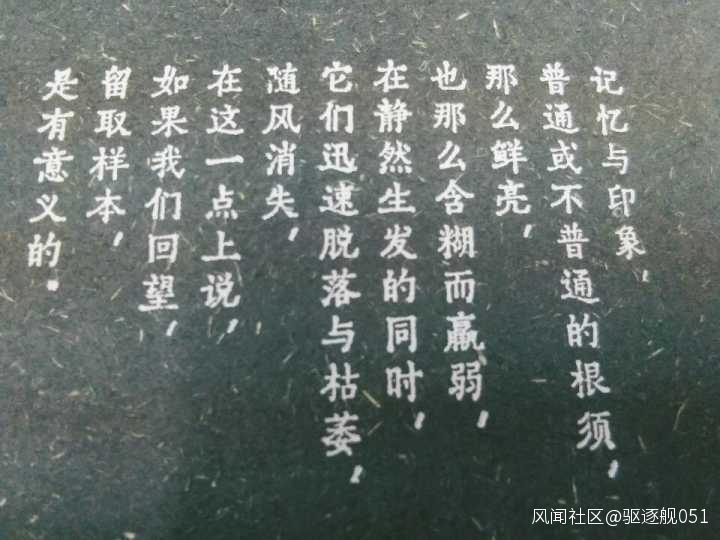 记忆与印象、
普通或不普通的根须，
那么鲜亮，
也那么含糊而羸弱，
在静然生发的同时，
它们迅速脱落与枯萎，
随风消失，
在这一点上说，
如果我们回望，
留取样本，
是有意义的.
风闻社区@驱逐舰051